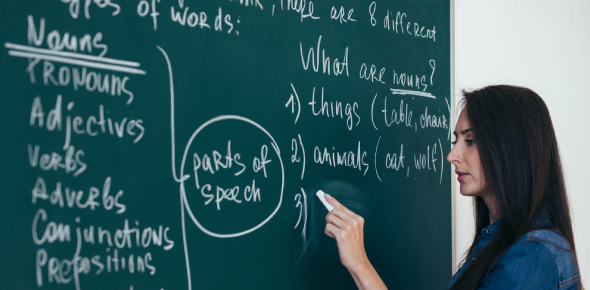 of words:
there are 8 different
Nouns
Pronouns
Adjectives
Verbs
Adverbs
Conjunctions
Prepositions
parts of
speech
What are nouns?
1) things (table,
2) animals (cat, wolf)
3)